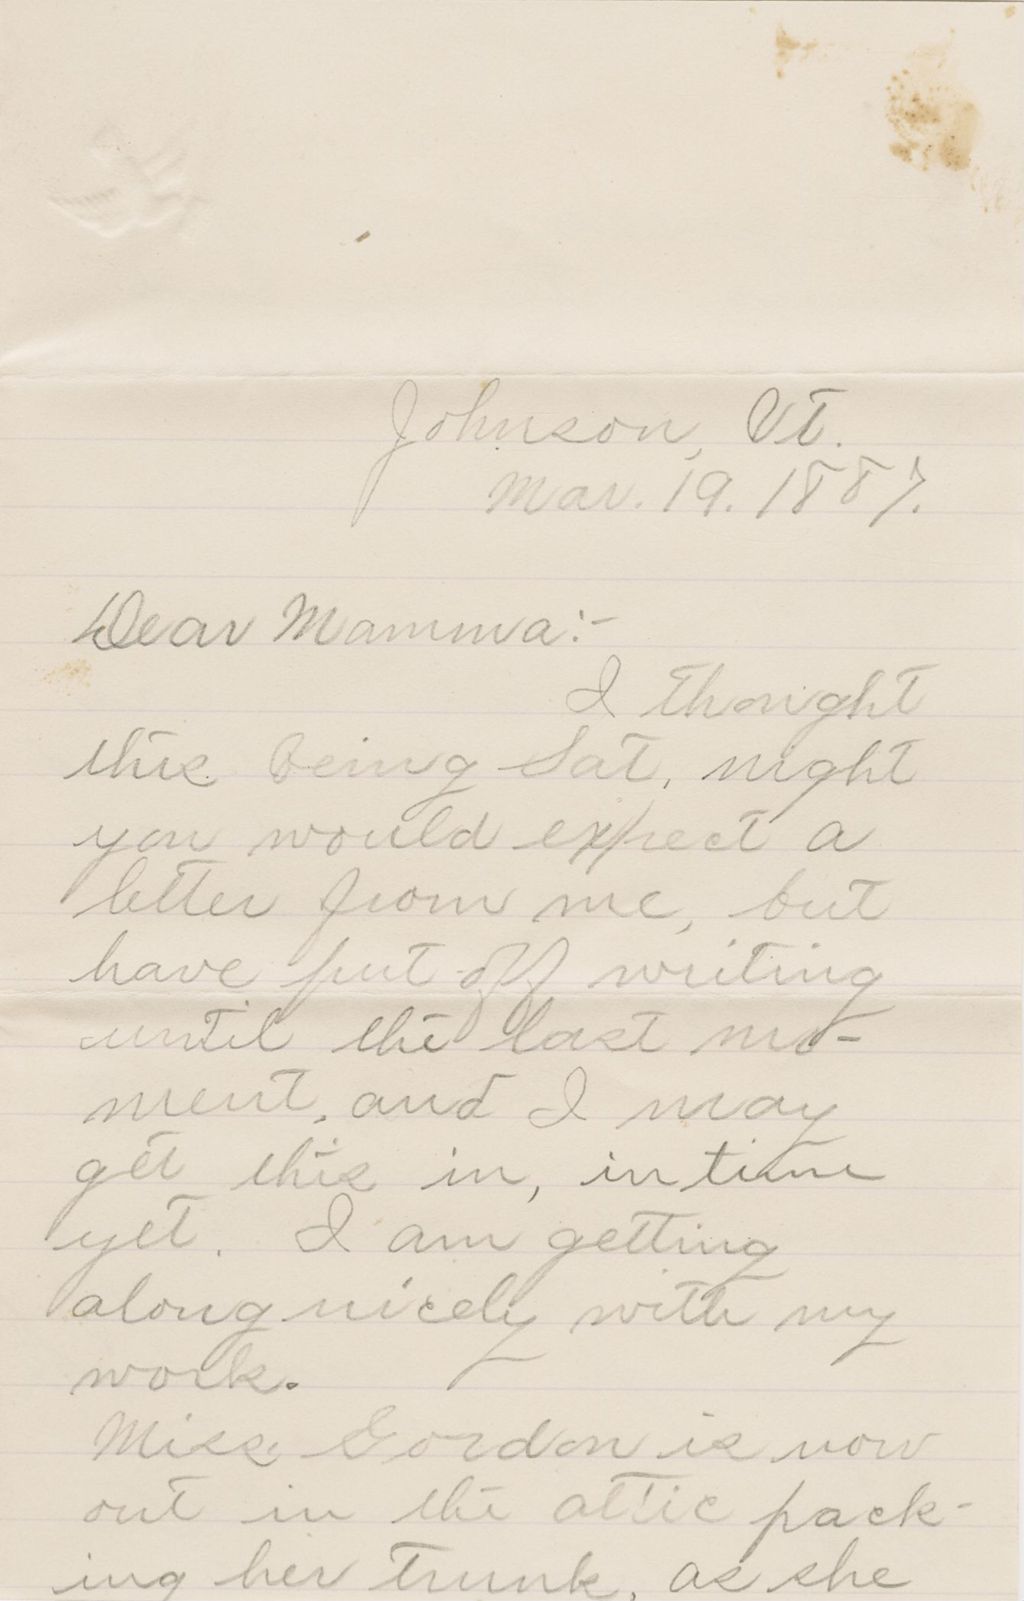 Johnson, Vt.
Mar. 19. 1887.
Dear Mamma:-
I thought
this being Sat. night
you would expect a
letter from me, but
have put off writing
until the last mo-
ment, and I may
get this in, in time
yet. I am getting
along nicely with my
work.
Miss Gordon is now
out in the attic pack-
ing her trunk, as she